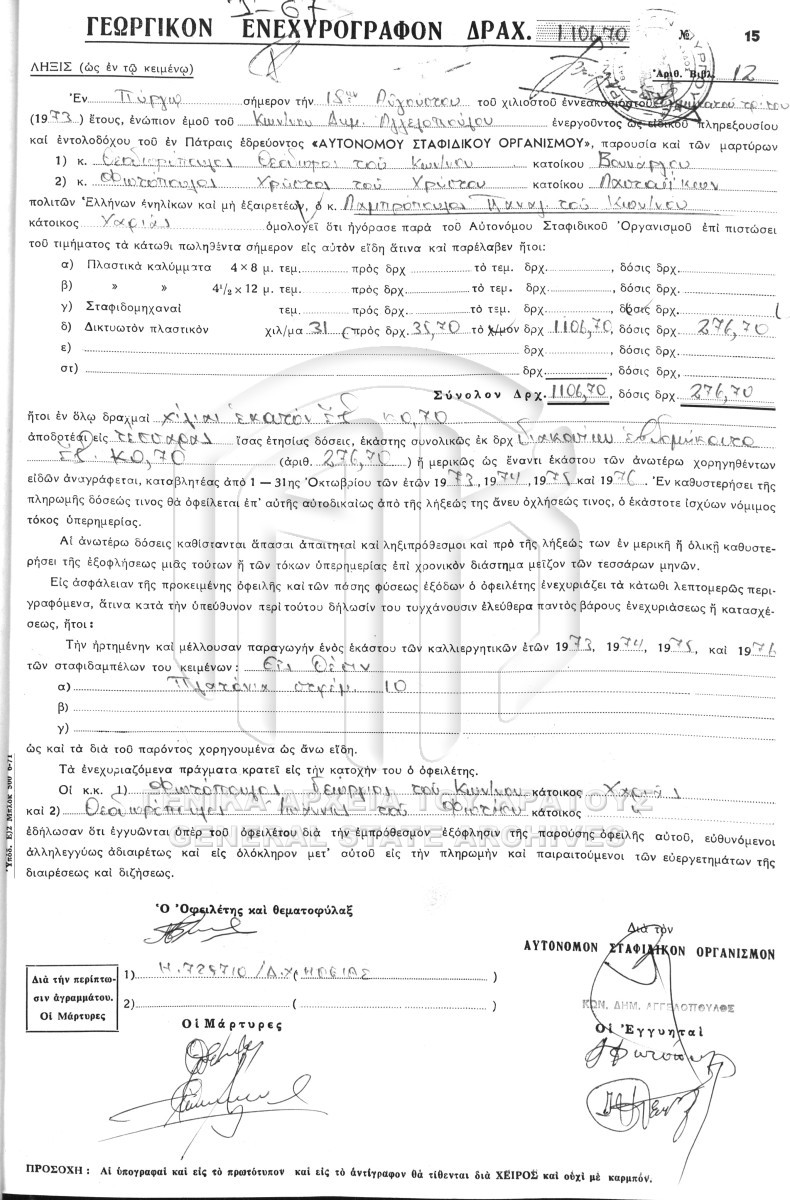 ΓΕΩΡΓΙΚΟΝ ΕΝΕΧΥΡΟΓΡΑΦΟΝ ΔΡΑΧ. 1.106,70 № 15
ΛΗΞΙΣ (ὡς ἐν τῷ κειμένῳ) Ἀριθ. Βιβλ. 12
Ἐν Πύργῳ σήμερον τὴν 18ην Αὐγούστου τοῦ χιλιοστοῦ ἐννεακοσιοστοῦ
(1973) ἔτους, ἐνώπιον ἐμοῦ τοῦ Κων/νου Δημ. Αγγελοπούλου ἐνεργοῦντος ὡς εἰδικοῦ πληρεξουσίου
καὶ ἐντολοδόχου τοῦ ἐν Πάτραις ἑδρεύοντος «ΑΥΤΟΝΟΜΟΥ ΣΤΑΦΙΔΙΚΟΥ ΟΡΓΑΝΙΣΜΟΥ», παρουσίᾳ καὶ τῶν μαρτύρων
1) κ. Θεοδωρόπουλος Θεόδωρος τοῦ Κων/νου κατοίκου Βουνάργου
2) κ. Φωτόπουλος Χρῆστος τοῦ Χρήστου κατοίκου
πολιτῶν Ἑλλήνων ἐνηλίκων καὶ μὴ ἐξαιρετέων, ὁ κ. Λαμπρόπουλος Παναγ. τοῦ Κων/νου
κάτοικος Χαριάς ὁμολογεῖ ὅτι ἠγόρασε παρὰ τοῦ Αὐτονόμου Σταφιδικοῦ Ὀργανισμοῦ ἐπὶ πιστώσει
τοῦ τιμήματος τὰ κάτωθι πωληθέντα σήμερον εἰς αὐτὸν εἴδη ἅτινα καὶ παρέλαβεν ἤτοι:
α) Πλαστικὰ καλύμματα 4×8 μ. τεμ. πρὸς δρχ τὸ τεμ. δρχ. , δόσις δρχ.
β) » » 4½×12 μ. τεμ. πρὸς δρχ. τὸ τεμ. δρχ. , δόσις δρχ.
γ) Σταφιδομηχαναί τεμ. πρὸς δρχ. τὸ τεμ. δρχ. , δόσις δρχ.
δ) Δικτυωτὸν πλαστικὸν χιλ/μα 31 πρὸς δρχ. 35,70 τὸ χ/μον δρχ 1106,70 δόσις δρχ. 276,70
ε) δρχ , δόσις δρχ.
στ) δρχ. , δόσις δρχ,
Σύνολον Δρχ. 1106,70, δόσις δρχ. 276,70
ἤτοι ἐν ὅλῳ δραχμαὶ χίλιαι ἑκατόν ἕξ κ 0,70
ἀποδοτέαι εἰς τέσσαρας ἴσας ἐτησίας δόσεις, ἑκάστης συνολικῶς ἐκ δρχ διακοσίων ἑβδομήκοντα
ἕξ κ 0,70 (ἀριθ. 276,70) ἢ μερικῶς ὡς ἔναντι ἑκάστου τῶν ἀνωτέρω χορηγηθέντων
εἰδῶν ἀναγράφεται, καταβλητέας ἀπὸ 1 — 31ης Ὀκτωβρίου τῶν ἐτῶν 1973, 1974, 1975 καὶ 1976. Ἐν καθυστερήσει τῆς
πληρωμῆς δόσεώς τινος θὰ ὀφείλεται ἐπ' αὐτῆς αὐτοδικαίως ἀπὸ τῆς λήξεώς της ἄνευ ὀχλήσεώς τινος, ὁ ἑκάστοτε ἰσχύων νόμιμος
τόκος ὑπερημερίας.
Αἱ ἀνωτέρω δόσεις καθίστανται ἅπασαι ἀπαιτηταὶ καὶ ληξιπρόθεσμοι καὶ πρὸ τῆς λήξεώς των ἐν μερικῇ ἢ ὁλικῇ καθυστε-
ρήσει τῆς ἐξοφλήσεως μιᾶς τούτων ἢ τῶν τόκων ὑπερημερίας ἐπὶ χρονικὸν διάστημα μεῖζον τῶν τεσσάρων μηνῶν.
Εἰς ἀσφάλειαν τῆς προκειμένης ὀφειλῆς καὶ τῶν πάσης φύσεως ἐξόδων ὁ ὀφειλέτης ἐνεχυριάζει τὰ κάτωθι λεπτομερῶς περι-
γραφόμενα, ἅτινα κατὰ τὴν ὑπεύθυνον περὶ τούτου δήλωσίν του τυγχάνουσιν ἐλεύθερα παντὸς βάρους ἐνεχυριάσεως ἢ κατασχέ-
σεως, ἤτοι:
Τὴν ἠρτημένην καὶ μέλλουσαν παραγωγὴν ἑνὸς ἑκάστου τῶν καλλιεργητικῶν ἐτῶν 1973, 1974, 1975, καὶ 1976
τῶν σταφιδαμπέλων του κειμένων: Εἰς θέσιν
α) Πλατάνια στρέμ. 10
β)
γ)
ὡς καὶ τὰ διὰ τοῦ παρόντος χορηγουμένα ὡς ἄνω εἴδη.
Τὰ ἐνεχυριαζόμενα πράγματα κρατεῖ εἰς τὴν κατοχήν του ὁ ὀφειλέτης.
Οἱ κ.κ. 1) Φωτόπουλος Γεώργιος τοῦ Κων/νου κάτοικος Χαριάς
καὶ 2) Θεοδωρόπουλος Ἰωάννης τοῦ Φωτίου κάτοικος "
ΓΕΝΙΚΑ ΑΡΧΕΙΑ ΤΟΥ ΚΡΑΤΟΥΣ
ἐδήλωσαν ὅτι ἐγγυῶνται ὑπὲρ τοῦ ὀφειλέτου διὰ τὴν ἐμπρόθεσμον ἐξόφλησιν τῆς παρούσης ὀφειλῆς αὐτοῦ, εὐθυνόμενοι
GENERAL STATE ARCHIVES
ἀλληλεγγύως ἀδιαιρέτως καὶ εἰς ὁλόκληρον μετ' αὐτοῦ εἰς τὴν πληρωμὴν καὶ παραιτούμενοι τῶν εὐεργετημάτων τῆς
διαιρέσεως καὶ διζήσεως.
Ὁ Ὀφειλέτης καὶ θεματοφύλαξ
Διὰ τὸν
ΑΥΤΟΝΟΜΟΝ ΣΤΑΦΙΔΙΚΟΝ ΟΡΓΑΝΙΣΜΟΝ
Διὰ τὴν περίπτω-
σιν ἀγραμμάτου.
Οἱ Μάρτυρες
1) Η.725710/Δ.Χ( ΗΛΕΙΑΣ )
2) ( )
ΚΩΝ. ΔΗΜ. ΑΓΓΕΛΟΠΟΥΛΟΣ
Οἱ Μάρτυρες
Οἱ Ἐγγυηταὶ
ΠΡΟΣΟΧΗ : Αἱ ὑπογραφαὶ καὶ εἰς τὸ πρωτότυπον καὶ εἰς τὸ ἀντίγραφον θὰ τίθενται διὰ ΧΕΙΡΟΣ καὶ οὐχὶ μὲ καρμπόν.